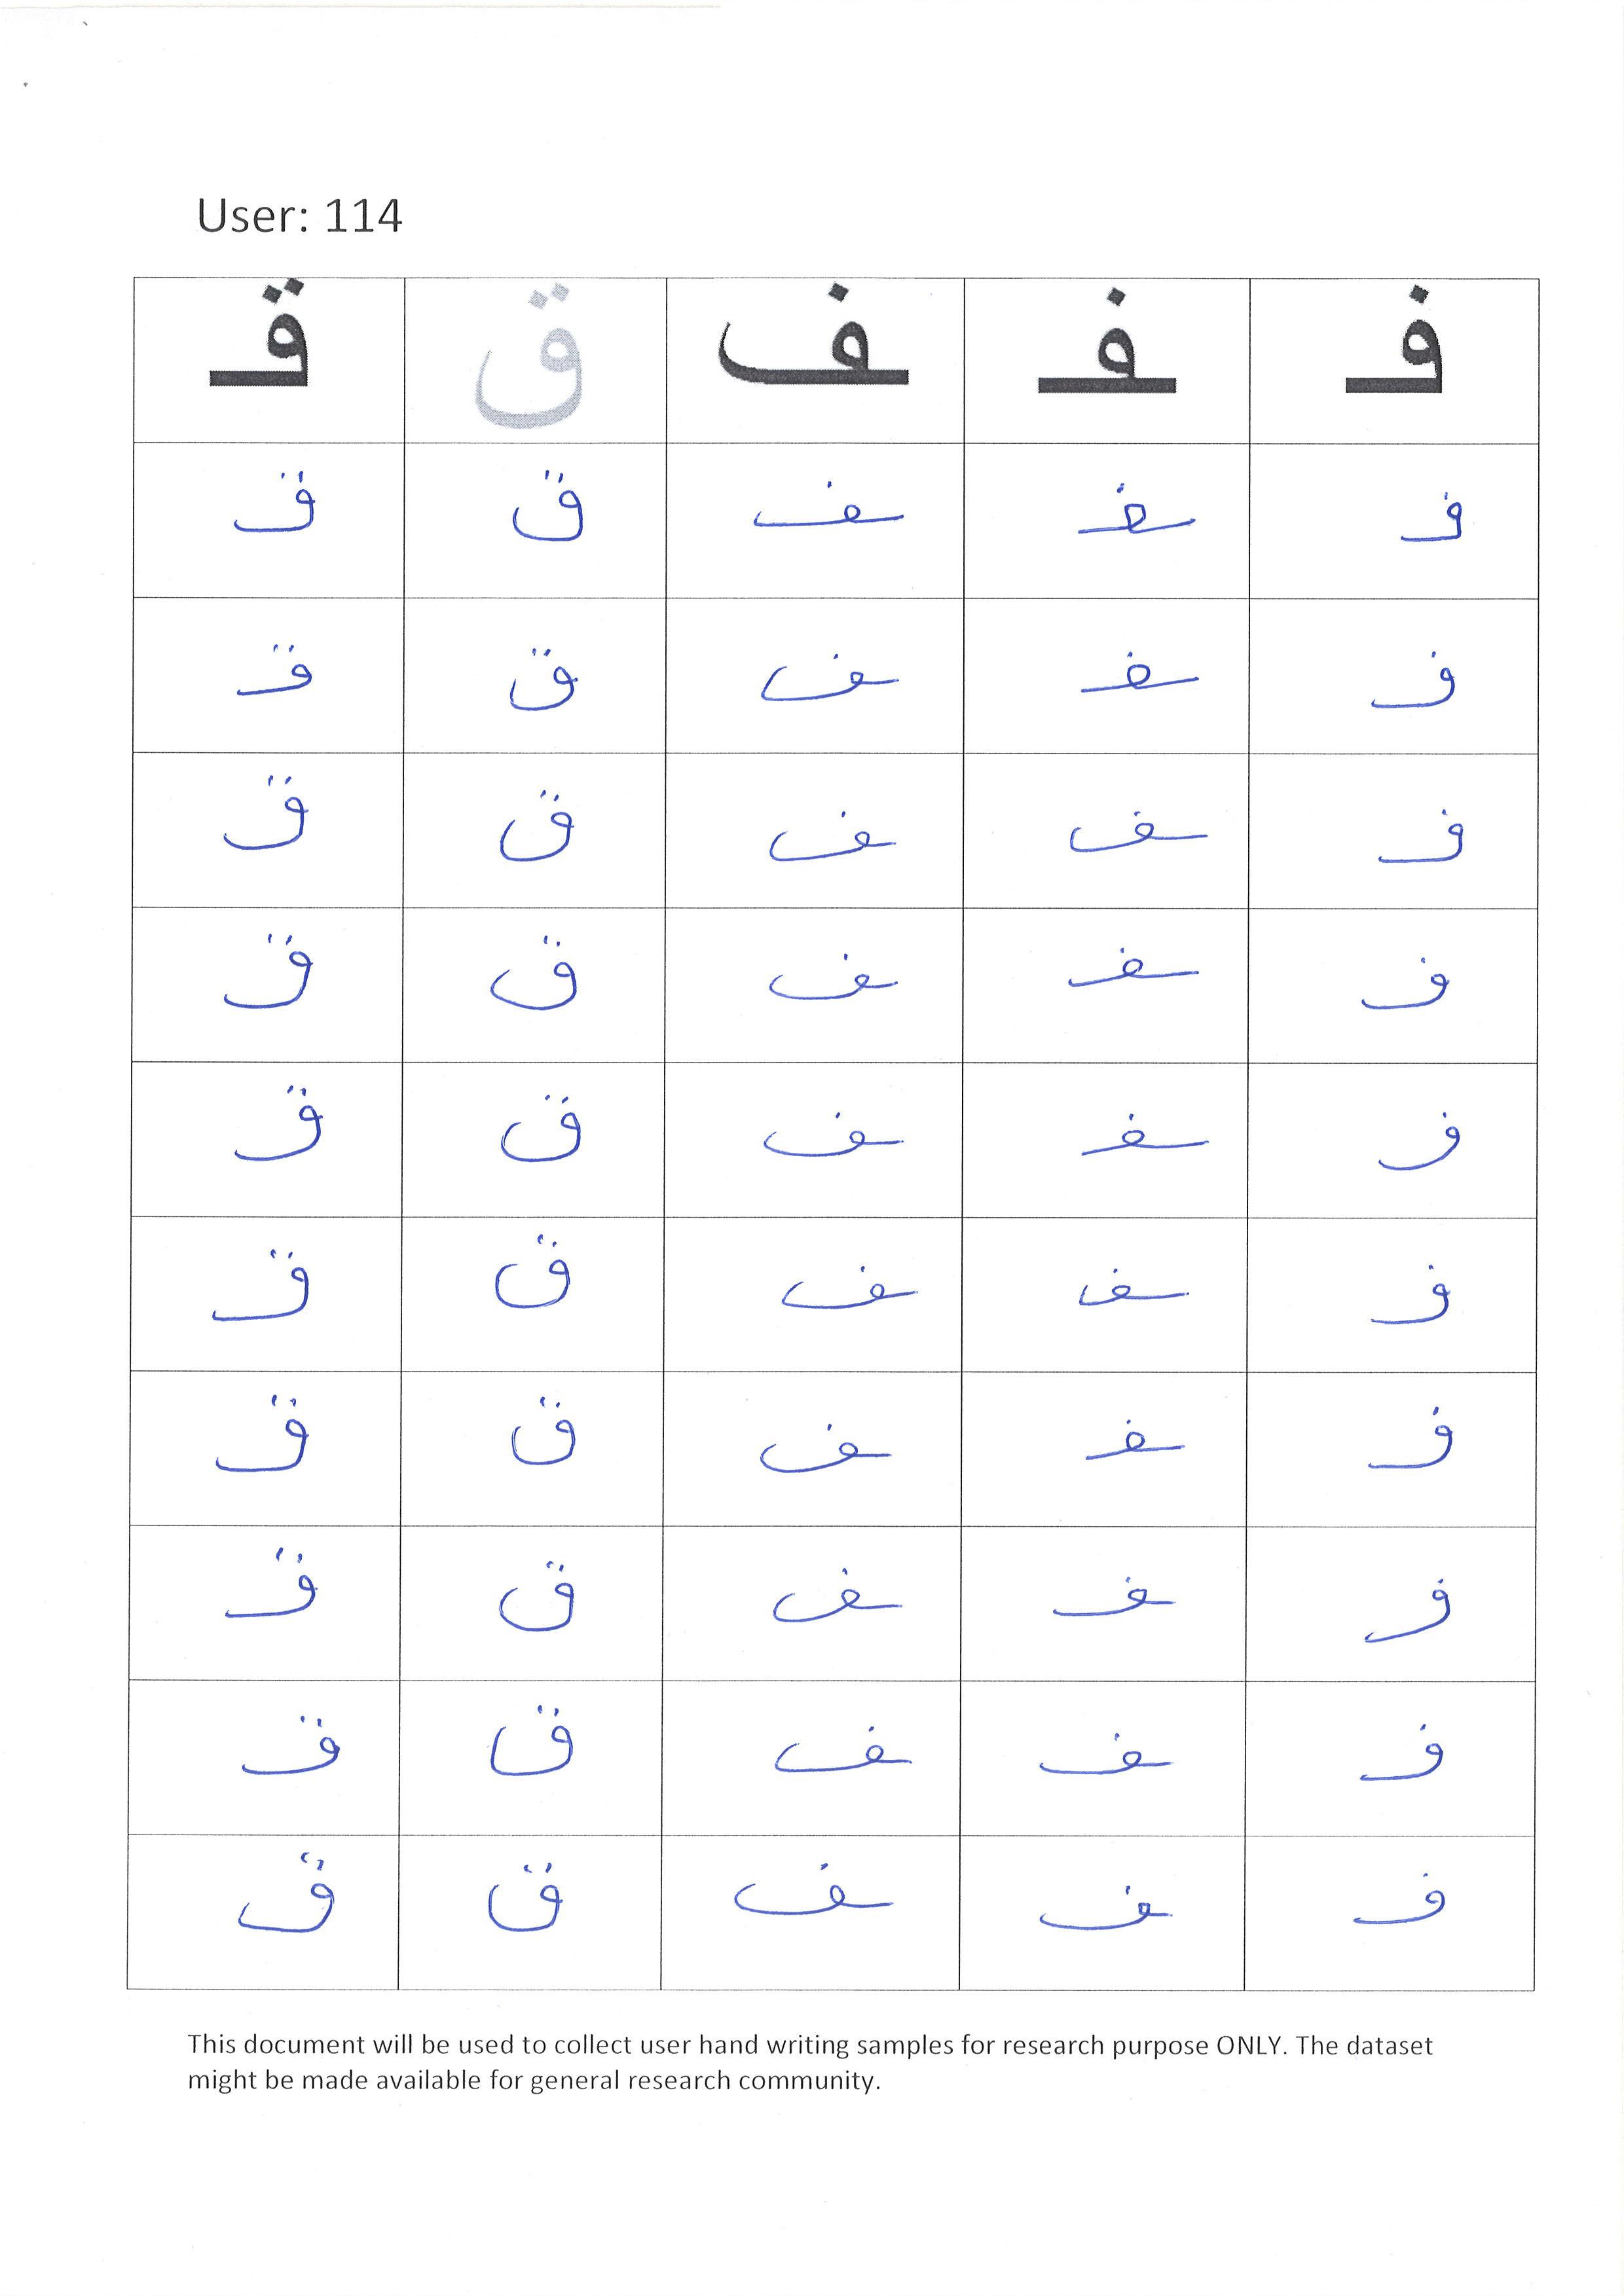 User: 114
فـ ـفـ ـف ق قـ
فـ ـفـ ـف ق قـ
فـ ـفـ ـف ق قـ
فـ ـف ـف ق قـ
فـ ـفـ ـف ق قـ
فـ ـفـ ـف ق قـ
فـ ـف ـف ق قـ
فـ ـفـ ـف ق قـ
فـ ـفـ ـف ق قـ
فـ ـفـ ـف ق قـ
فـ ـفـ ـف ق قـ
This document will be used to collect user hand writing samples for research purpose ONLY. The dataset
might be made available for general research community.